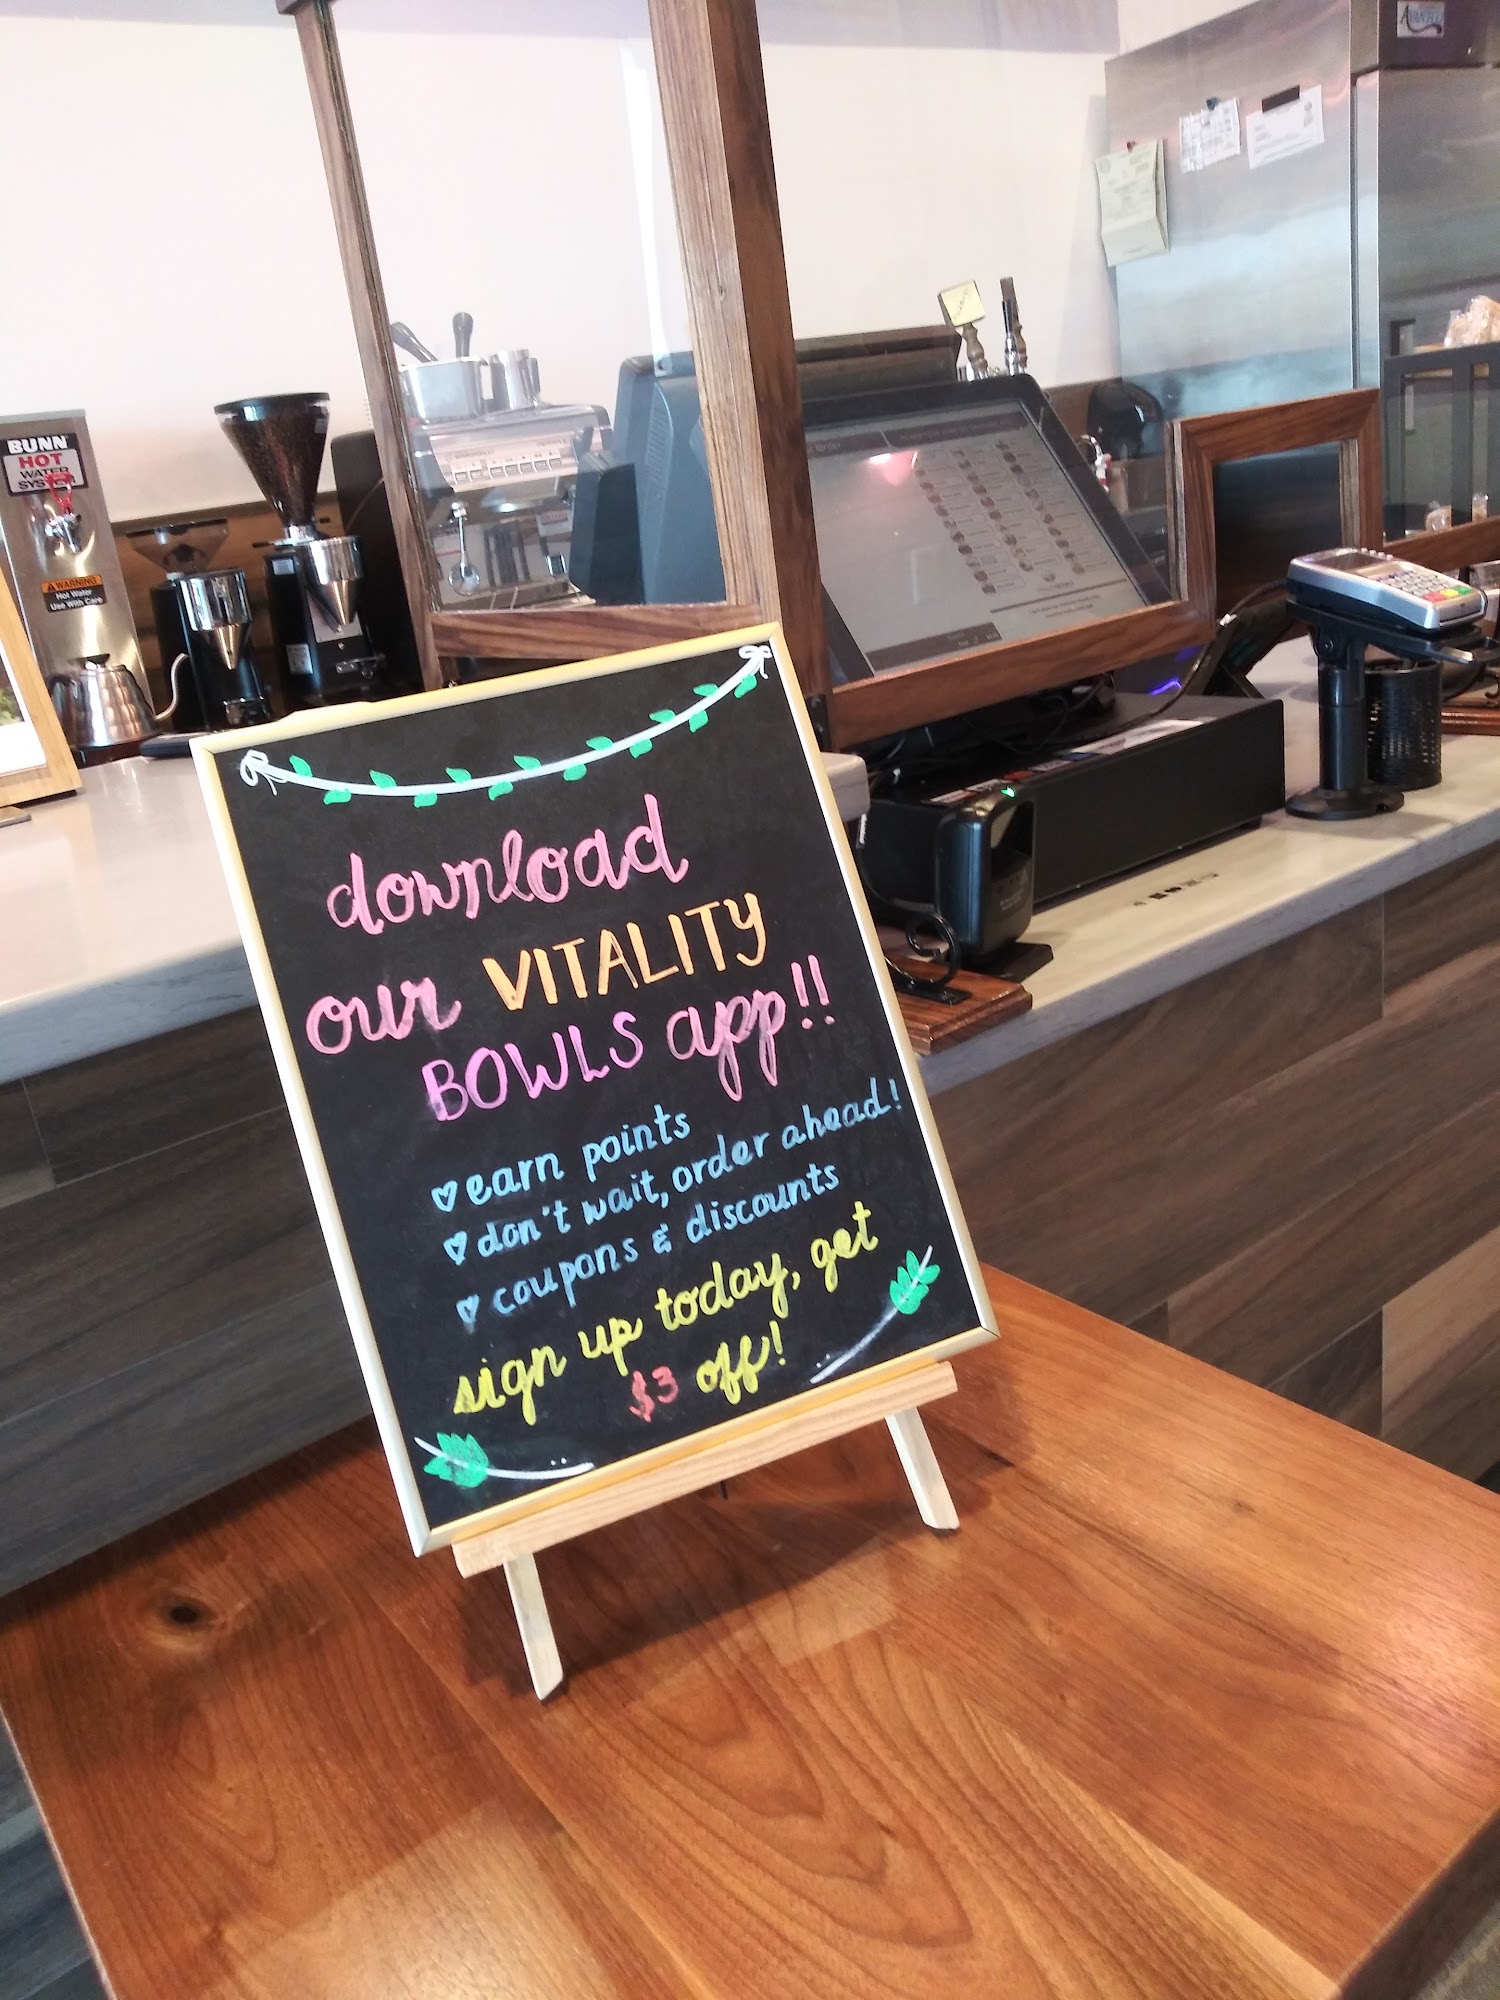 BUNN
HOT
WATER
SYSTEM
WARNING
Hot Water
Use With Care
download
our VITALITY
BOWLS app!!
earn points
don't wait, order ahead!
coupons & discounts
sign up today, get
$3 off!